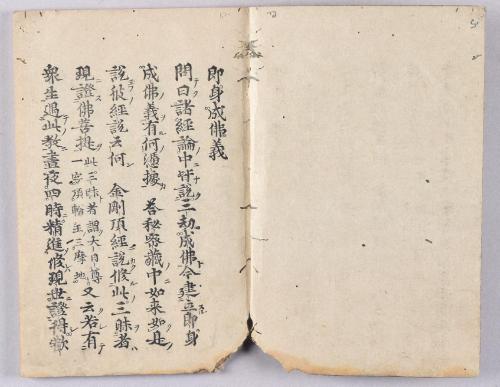 即身成佛義
問曰諸經論中皆說三劫成佛今建立即身
成佛義有何憑據 荅秘密藏中如来如是
說彼經說云何 金剛頂經說修此三昧者
現證佛菩提 此三昧者謂大日尊
一字頂輪王三摩地 又云若有
衆生遇此教晝夜四時精進修現世證得歡